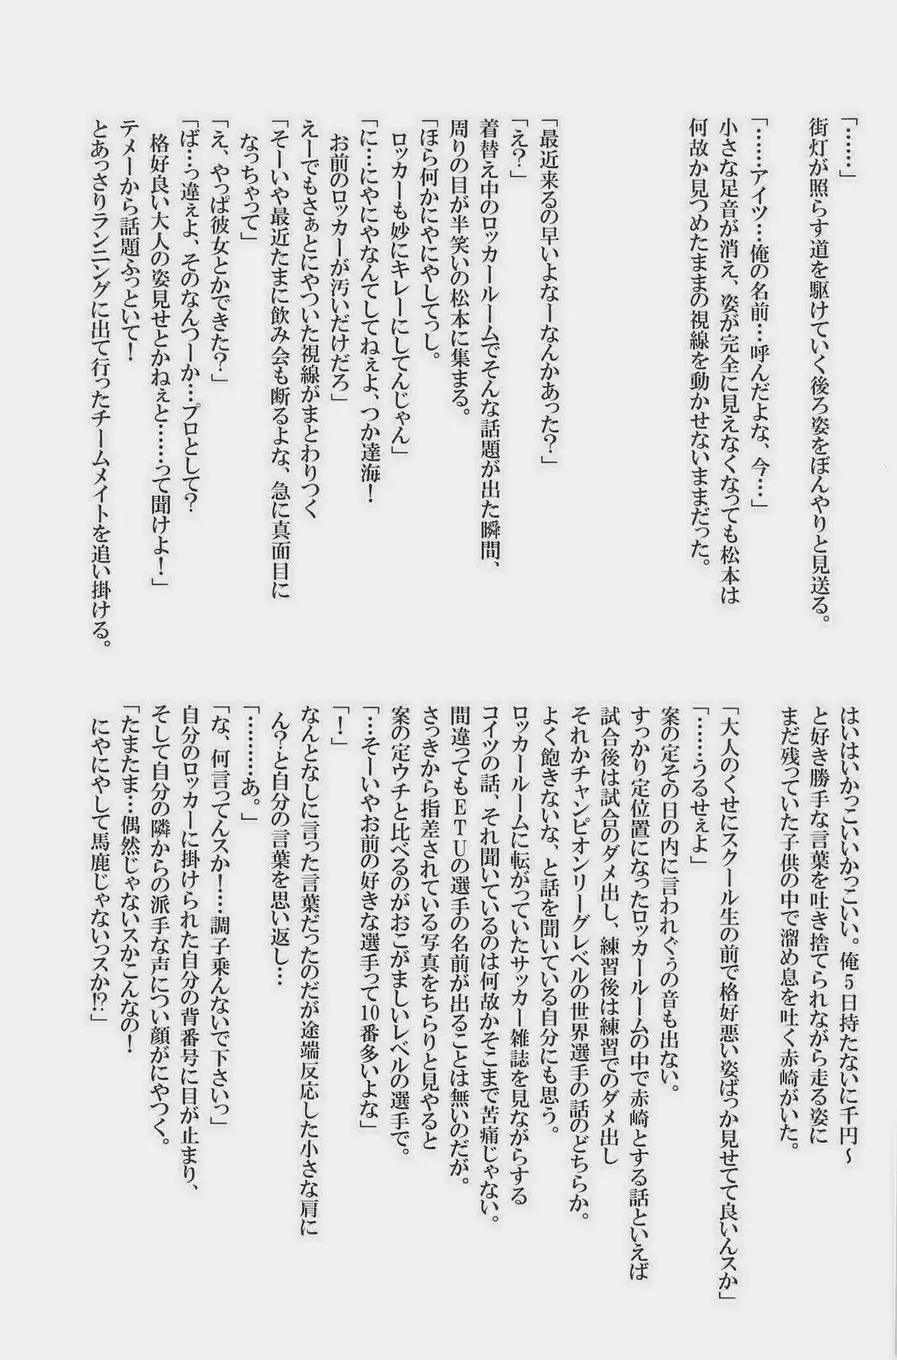 「……」
街灯が照らす道を駆けていく後ろ姿をぼんやりと見送る。
「……アイツ…俺の名前…呼んだよな、今…」
小さな足音が消え、姿が完全に見えなくなっても松本は
何故か見つめたままの視線を動かせないままだった。
「最近来るの早いよなーなんかあった？」
「え？」
着替え中のロッカールームでそんな話題が出た瞬間、
周りの目が半笑いの松本に集まる。
「ほら何かにやにやしてっし。
ロッカーも妙にキレーにしてんじゃん」
「に…にやにやなんてしてねぇよ、つか達海！
お前のロッカーが汚いだけだろ」
えーでもさぁとにやついた視線がまとわりつく
「そーいや最近たまに飲み会も断るよな、急に真面目に
なっちゃって」
「え、やっぱ彼女とかできた？」
「ば…っ違ぇよ、そのなんつーか…プロとして？
格好良い大人の姿見せとかねぇと……って聞けよ！」
テメーから話題ふっといて！
とあっさりランニングに出て行ったチームメイトを追い掛ける。
はいはいかっこいいかっこいい。俺５日持たないに千円～
と好き勝手な言葉を吐き捨てられながら走る姿に
まだ残っていた子供の中で溜め息を吐く赤崎がいた。
「大人のくせにスクール生の前で格好悪い姿ばっか見せてて良いんスか」
「……うるせぇよ」
案の定その日の内に言われぐぅの音も出ない。
すっかり定位置になったロッカールームの中で赤崎とする話といえば
試合後は試合のダメ出し、練習後は練習でのダメ出し
それかチャンピオンリーグレベルの世界選手の話のどちらか。
よく飽きないな、と話を聞いている自分にも思う。
ロッカールームに転がっていたサッカー雑誌を見ながらする
コイツの話、それ聞いているのは何故かそこまで苦痛じゃない。
間違ってもＥＴＵの選手の名前が出ることは無いのだが。
さっきから指差されている写真をちらりと見やると
案の定ウチと比べるのがおこがましいレベルの選手で。
「…そーいやお前の好きな選手って10番多いよな」
「！」
なんとなしに言った言葉だったのだが途端反応した小さな肩に
ん？と自分の言葉を思い返し…
「………あ。」
「な、何言ってんスか！…調子乗んないで下さいっ」
自分のロッカーに掛けられた自分の背番号に目が止まり、
そして自分の隣からの派手な声につい顔がにやつく。
「たまたま…偶然じゃないスかこんなの！
にやにやして馬鹿じゃないっスか!?」